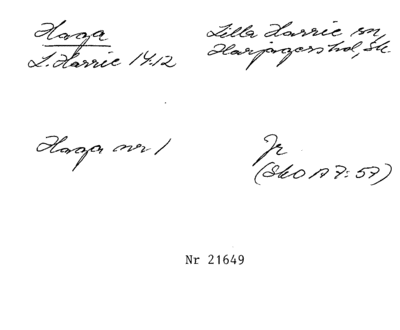 Haga
L. Harrie 14.12
Lilla Harrie sn,
Harjagers hd, Sk.
Haga nr 1
Jr
(SkO A 7:57)
Nr 21649